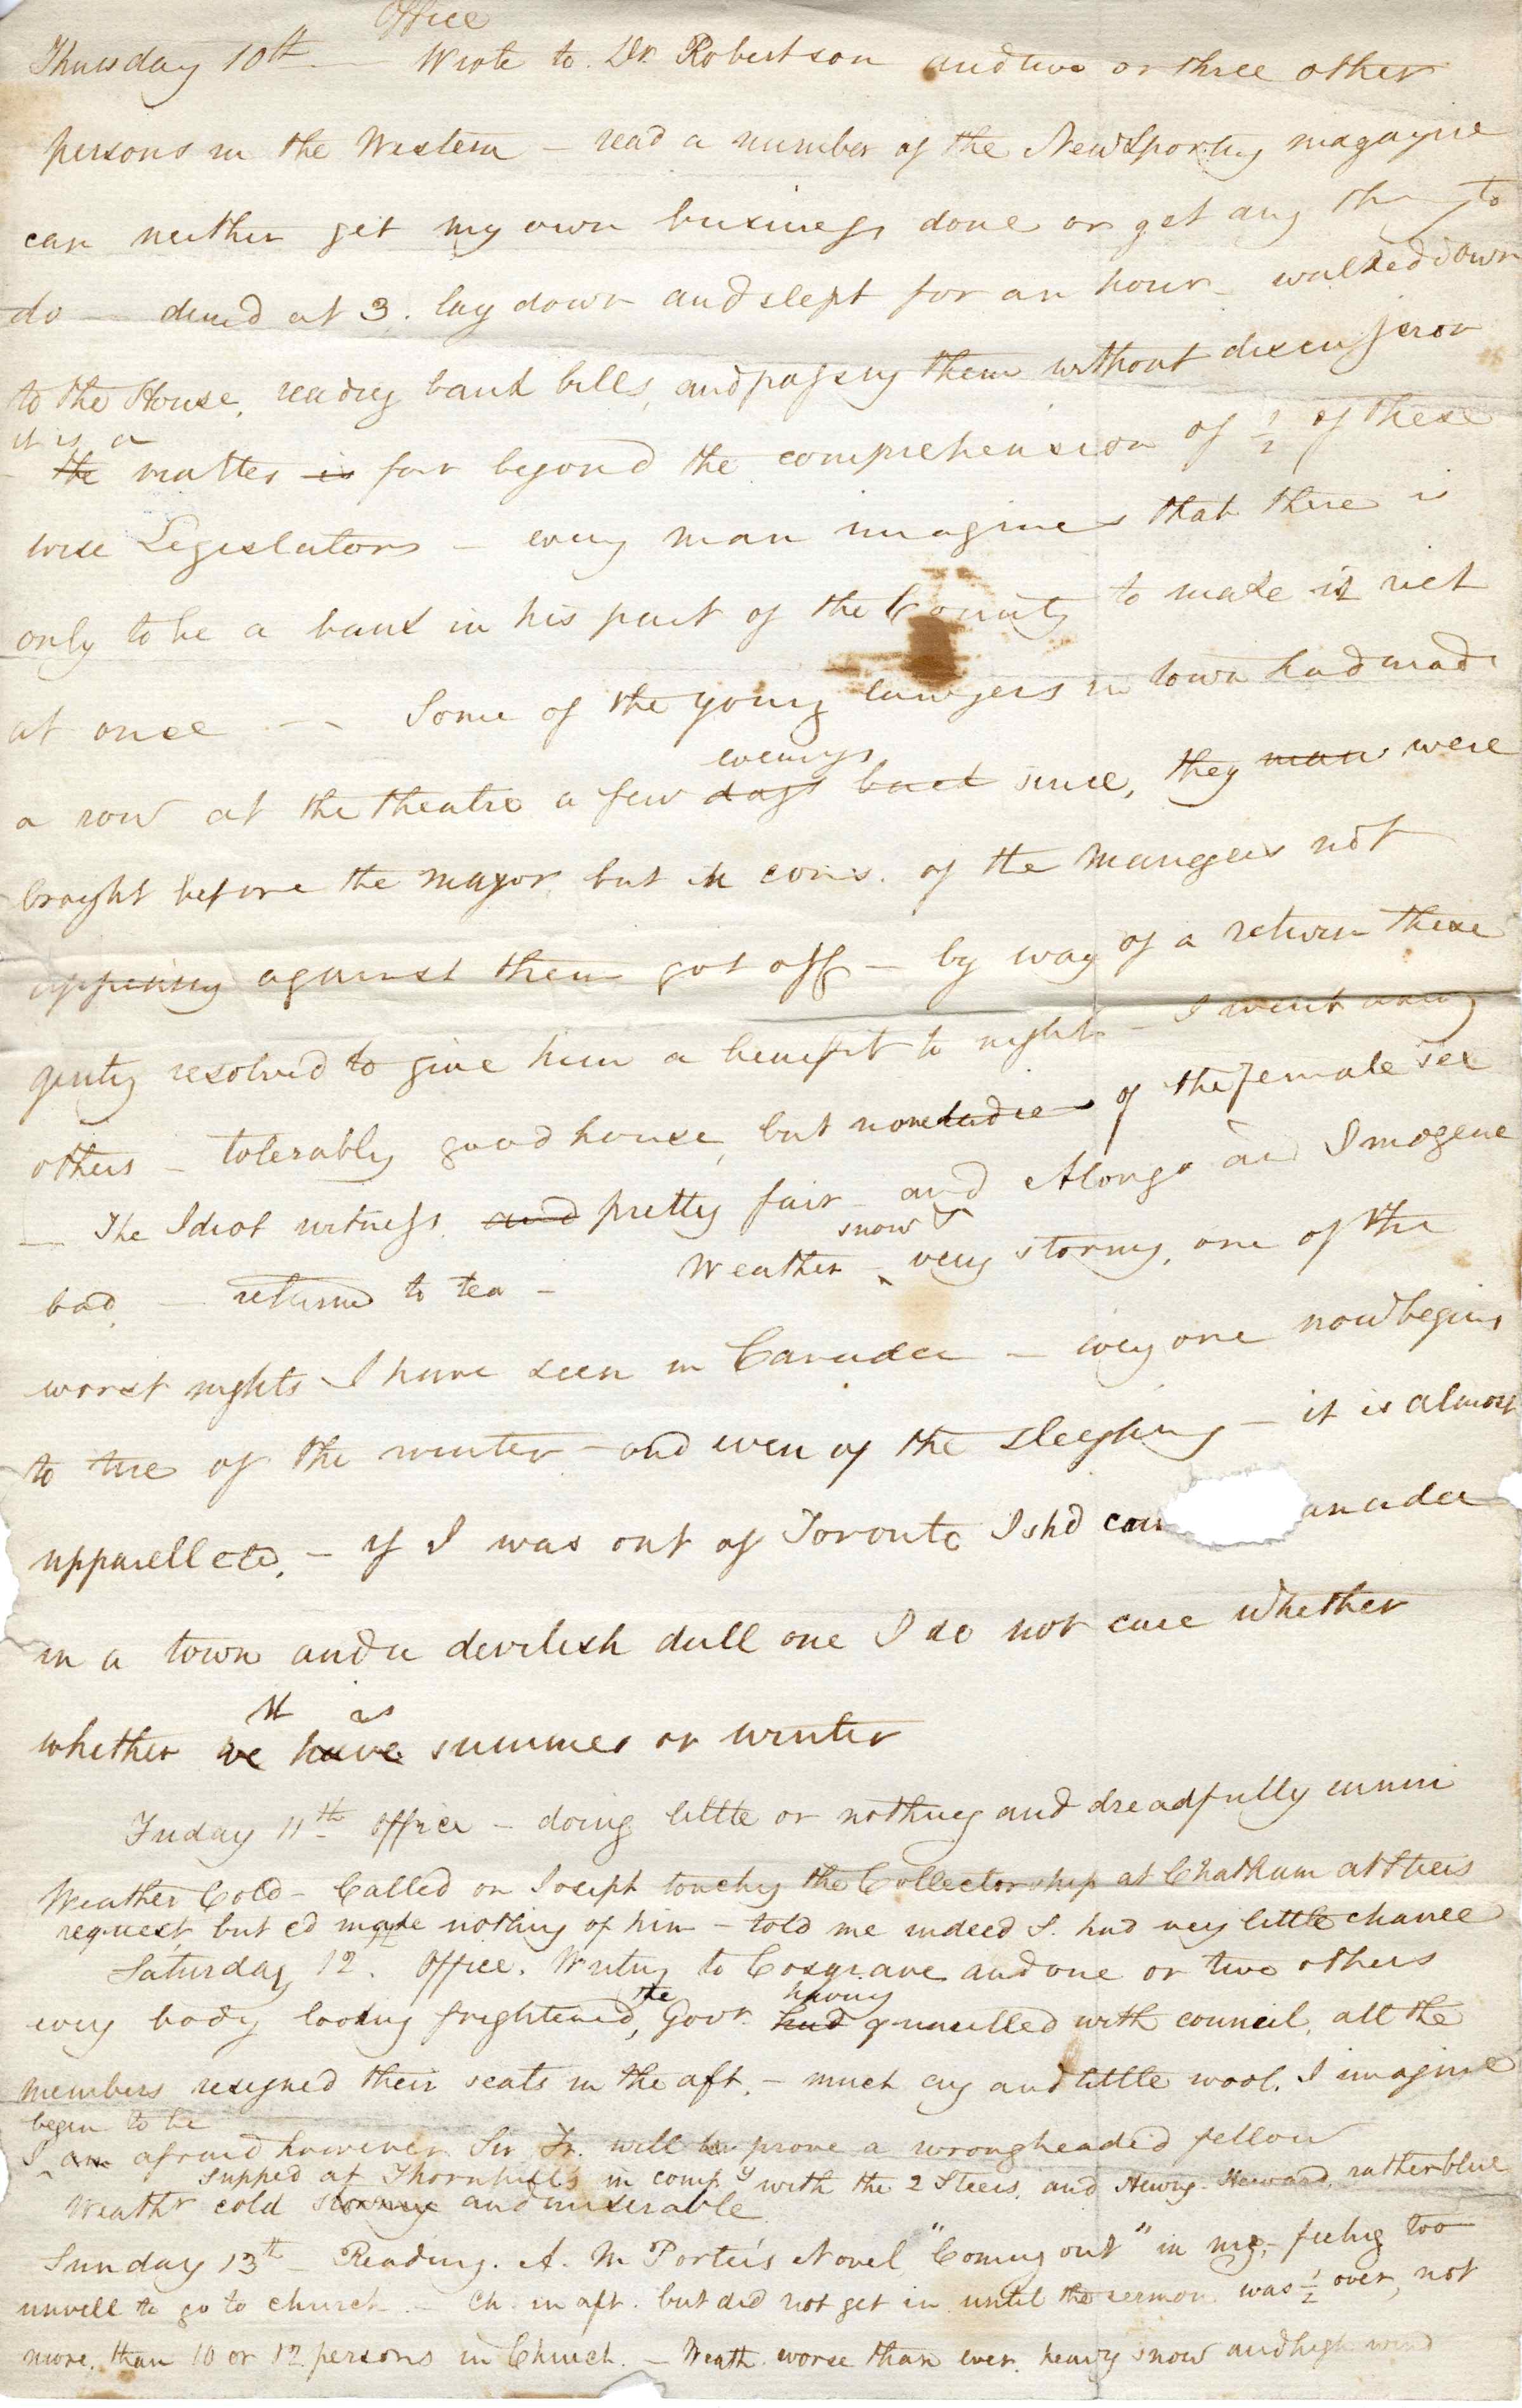 Office
Thursday 10th — Wrote to Dr. Robertson and two or three other
persons in the Western — read a number of the New Sporting magazine
can neither get my own business done or get any thing to
do — dined at 3. lay down and slept for an hour — walked down
to the House, reading bank bills, and passing them without discussion
it is a
- the matter is far beyond the comprehension of ½ of these
wise Legislators — every man imagines that there is
only to be a bank in his part of the County to make it rich
at once — Some of the young lawyers in town had made
evenings
a row at the theatre a few days back since, they man were
brought before the mayor, but in cons. of the Mangers not
appearing against them got off — by way of a return these
gents resolved to give him a benefit to night — I went among
others — tolerably good house, but none ladies of the female sex
— The Idiot witness. and pretty fair and Alonzo and Imogene
snow
bad, — returned to tea — Weather very stormy, one of the
worst nights I have seen in Canada — every one now begins
to tire of the winter — and even of the sleighing — it is almost
upparelleted, — if I was out of Toronto I shd anada
in a town and a devilish dull one I do not care whether
it is
whether we have summer or winter
Friday 11th Office — doing little or nothing and dreadfully ennui
Weather Cold — Called on Joseph touching the Collectorship at Chatham at Steers
request, but cd make nothing of him — told me indeed S. had very little chance
Saturday 12. Office. Writing to Cosgrave and one or two others
the having
every body looking frightened, Govr. had quarrelled with council, all the
members resigned their seats in the aft. — much cry and little wool. I imagine
begin to be
I am afraid however Sir Fr. will be prove a wrongheaded fellow
supped at Thornhill's in compy with the 2 Steers, and Heward, rather blue
Weathr cold stormy and miserable
Sunday 13th — Reading. A. M Porter's Novel "Coming out" in mg,- feeling too
unwell to go to church — Ch. in aft. but did not get in until the sermon was ½ over, not
more than 10 or 12 persons in Church. — Weath. worse than ever, heavy snow and high wind